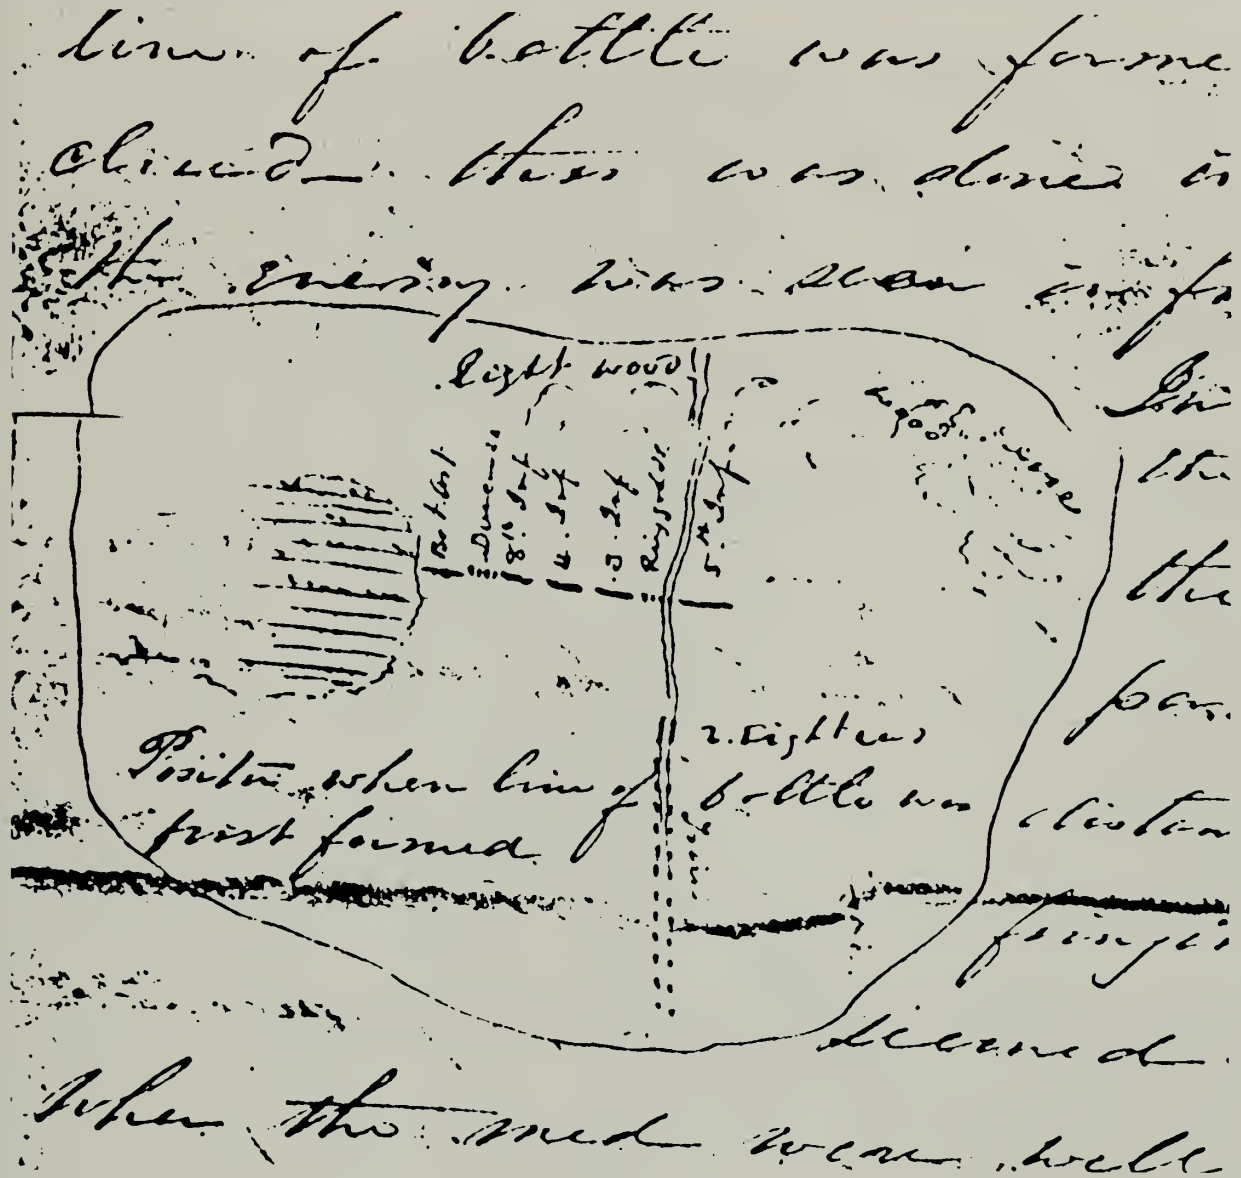 line of battle was forme
clined this was done in
the enemy was seen in fr
Light wood
Bat. Art
Duncan's
8th Inf
4. Inf
3. Inf
Ringolds.
5th Inf.
the
the
par.
2. Eighteens
Position when line of battle was
first formed
distan
seemed
When the men were well